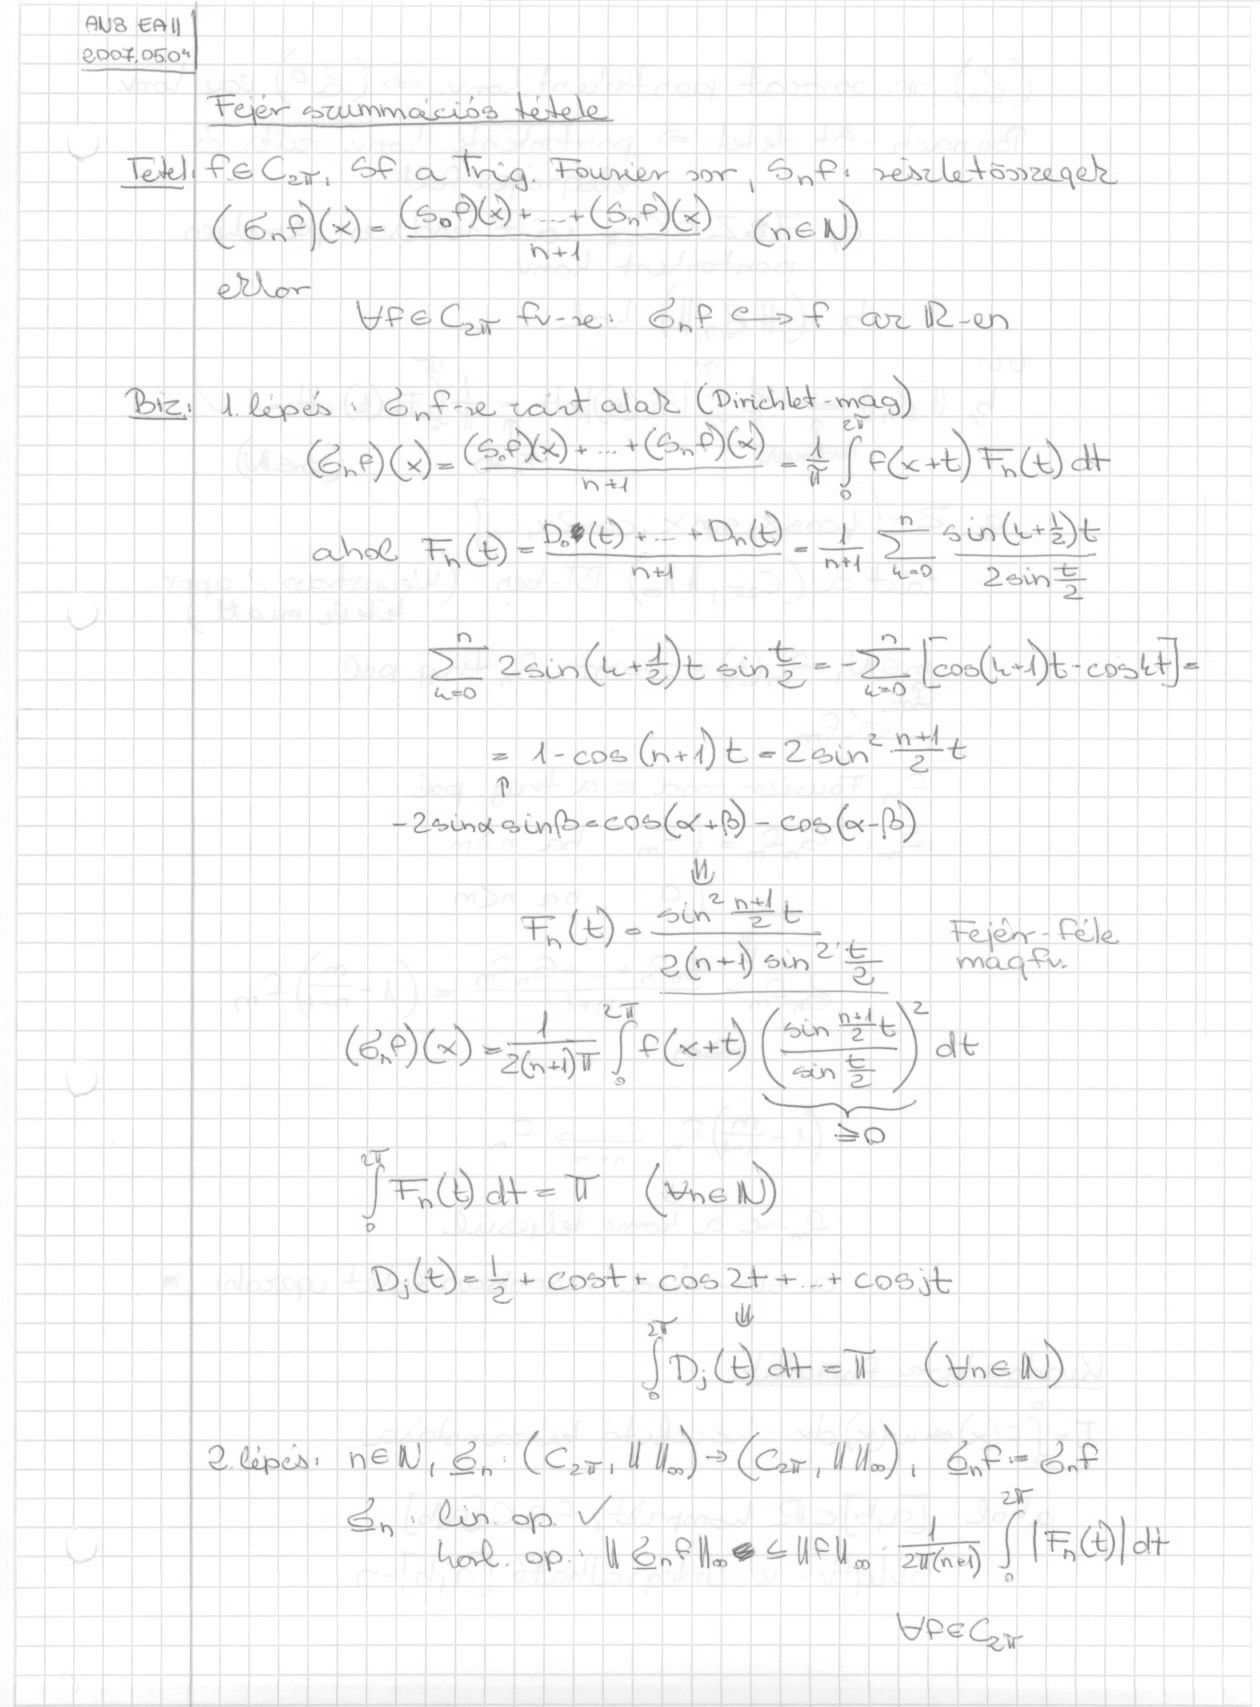 AN3 EA11
2007.05.04
Fejér szummációs tétele
Tétel: f∈C_{2π}, Sf a Trig. Fourier sor, S_nf: részletösszegek
(σ_nf)(x) = ((S_0f)(x)+...+(S_nf)(x))/(n+1) (n∈ℕ)
ekkor
∀f∈C_{2π} fv-re: σ_nf ⇉ f az ℝ-en
Biz: 1. lépés: σ_nf-re zárt alak (Dirichlet-mag)
(σ_nf)(x) = ((S_0f)(x)+...+(S_nf)(x))/(n+1) = 1/π ∫_0^{2π} f(x+t) F_n(t) dt
ahol F_n(t) = (D_0(t)+...+D_n(t))/(n+1) = 1/(n+1) ∑_{k=0}^{n} sin(k+1/2)t / (2sin t/2)
∑_{k=0}^{n} 2sin(k+1/2)t sin t/2 = -∑_{k=0}^{n} [cos(k+1)t - cos kt] =
= 1-cos(n+1)t = 2sin² (n+1)/2 t
↑
-2sinα sinβ = cos(α+β) - cos(α-β)
⇓
F_n(t) = sin² (n+1)/2 t / (2(n+1) sin² t/2) Fejér-féle magfv.
(σ_nf)(x) = 1/(2(n+1)π) ∫_0^{2π} f(x+t) (sin (n+1)/2 t / sin t/2)² dt
≥0
∫_0^{2π} F_n(t) dt = π (∀n∈ℕ)
D_j(t) = 1/2 + cost + cos2t + ... + cosjt
⇓
∫_0^{2π} D_j(t) dt = π (∀n∈ℕ)
2. lépés: n∈ℕ, σ_n : (C_{2π}, ‖ ‖_∞) → (C_{2π}, ‖ ‖_∞), σ_nf := σ_nf
σ_n : lin. op. ✓
korl. op.: ‖σ_nf‖_∞ ≤ ‖f‖_∞ · 1/(2π(n+1)) ∫_0^{2π} |F_n(t)| dt
∀f∈C_{2π}